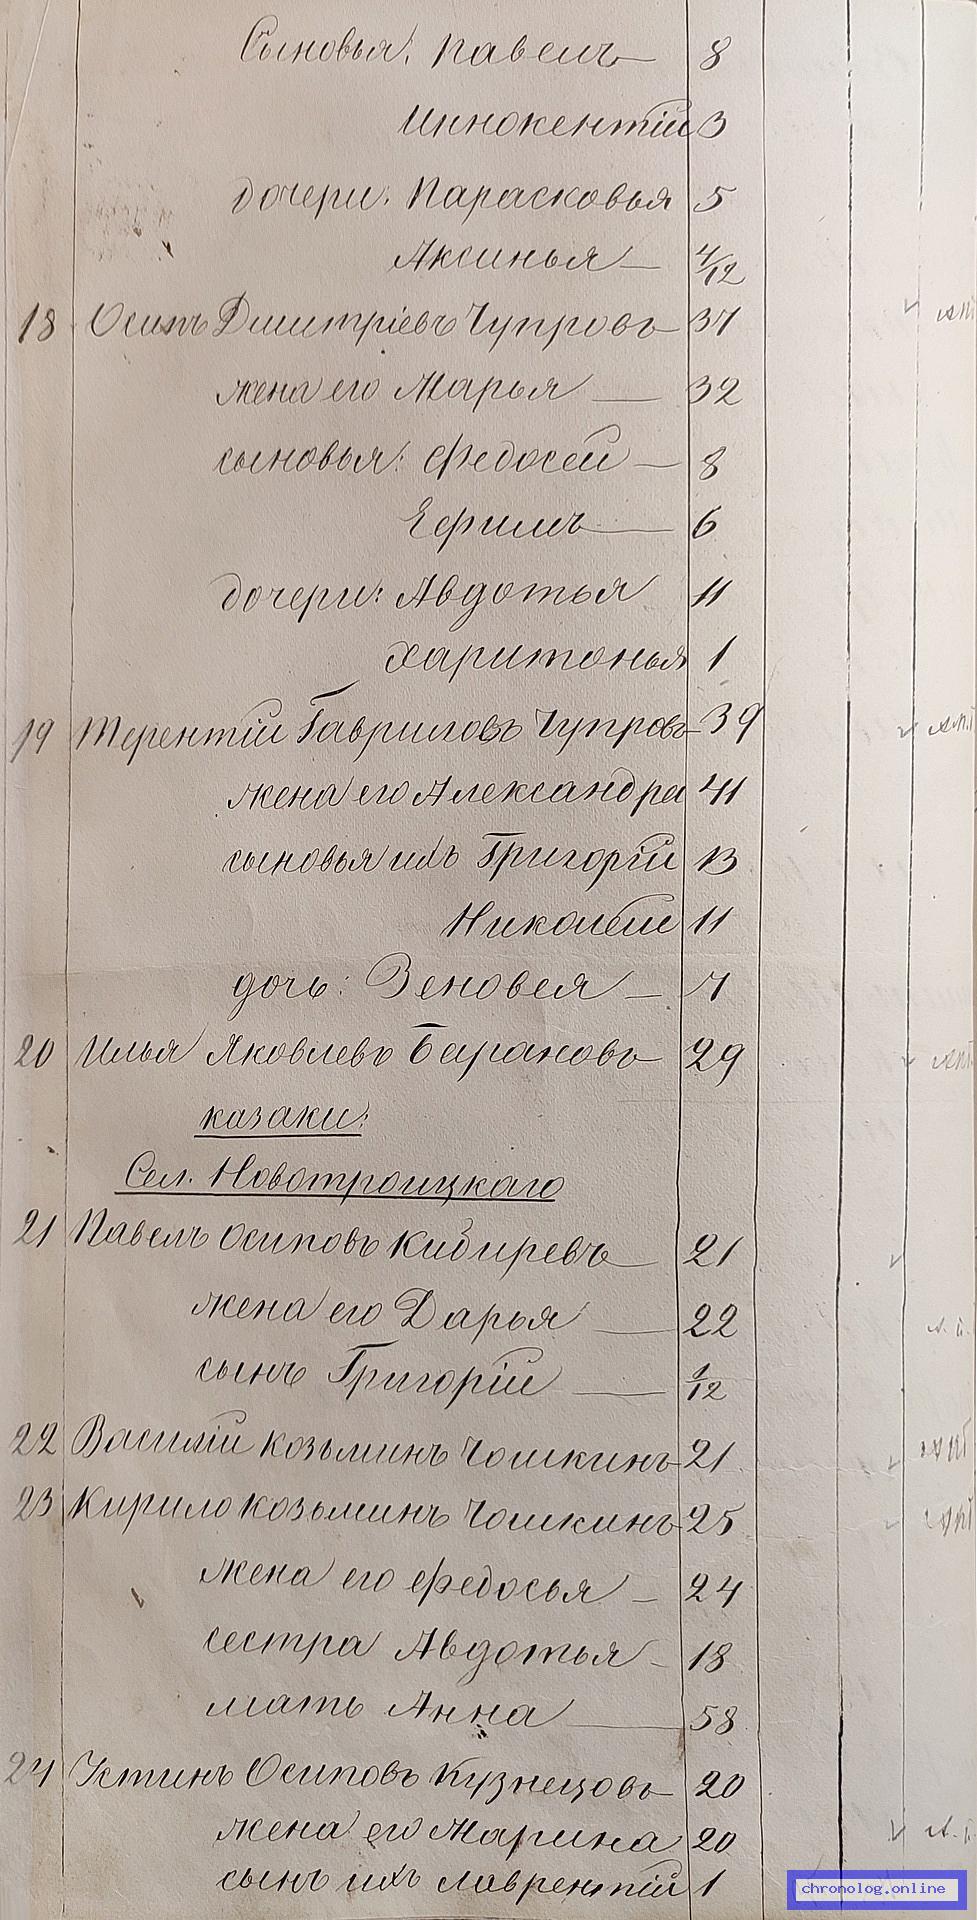 Сыновья: Павелъ — 8
Иннокентій 3
дочери: Парасковья 5
Аксинья — 4/12
18 Осипъ Дмитріевъ Чупровъ 37
жена его Марья — 32
сыновья: Федосей — 8
Ефимъ — 6
дочери: Авдотья 11
Харитонья 1
19 Терентій Гавриловъ Чупровъ 39
жена его Александра 41
сыновья ихъ Григорій 13
Николай 11
дочь: Зеновея — 7
20 Илья Яковлевъ Барановъ 29
казаки:
Сел. Новотроицкаго
21 Павелъ Осиповъ Кибиревъ — 21
жена его Дарья — 22
сынъ Григорій — 1/12
22 Василій Козьминъ Чошкинъ 21
23 Кирило Козьминъ Чошкинъ 25
жена его Федосья — 24
сестра Авдотья — 18
мать Анна — 58
24 Устинъ Осиповъ Кузнецовъ 20
жена его Марина 20
сынъ ихъ Лаврентій 1
chronolog.online